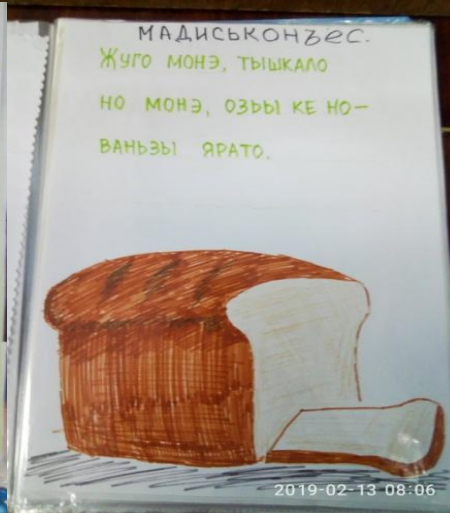 МАДИСЬКОНЪЕС.
ЖУГО МОНЭ, ТЫШКАЛО
НО МОНЭ, ОЗЬЫ КЕ НО-
ВАНЬЗЫ ЯРАТО.
2019-02-13 08:06